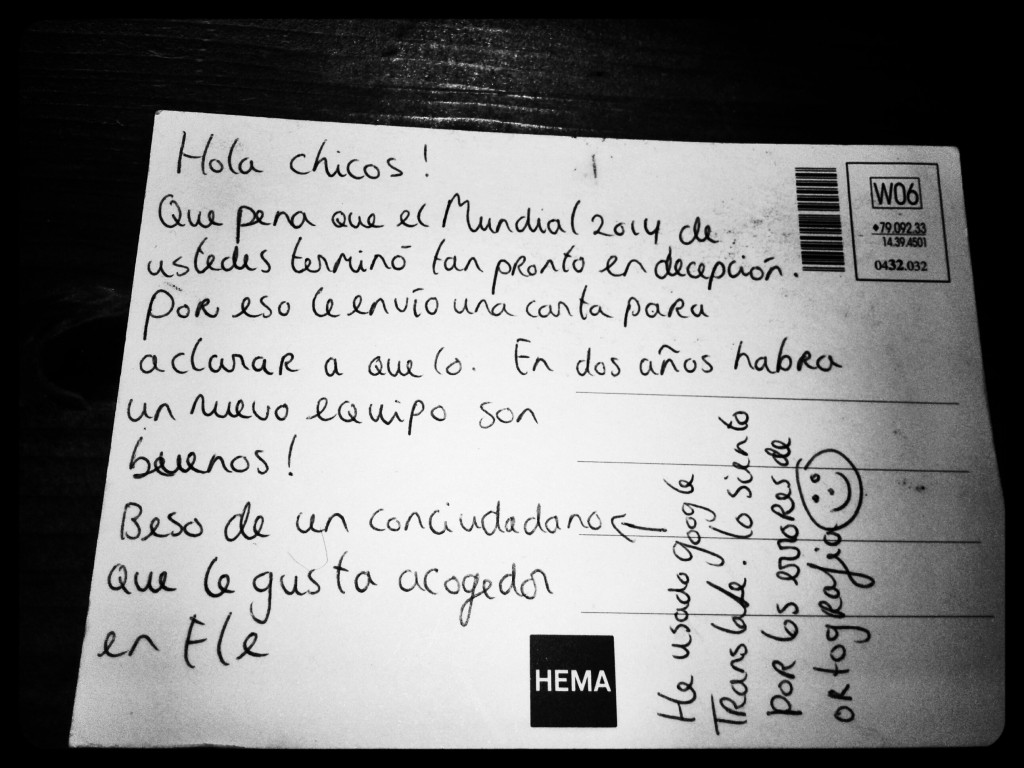 Hola chicos!
Que pena que el Mundial 2014 de
ustedes terminó tan pronto en decepción.
Por eso le envío una carta para
aclarar a que lo. En dos años habra
un nuevo equipo son
buenos!
Beso de un conciudadano ←
que le gusta acogedor
en Ele
He usado google
Translate. lo siento
por los errores de
ortografia
W06
+79.092.33
14.39.4501
0432.032
HEMA